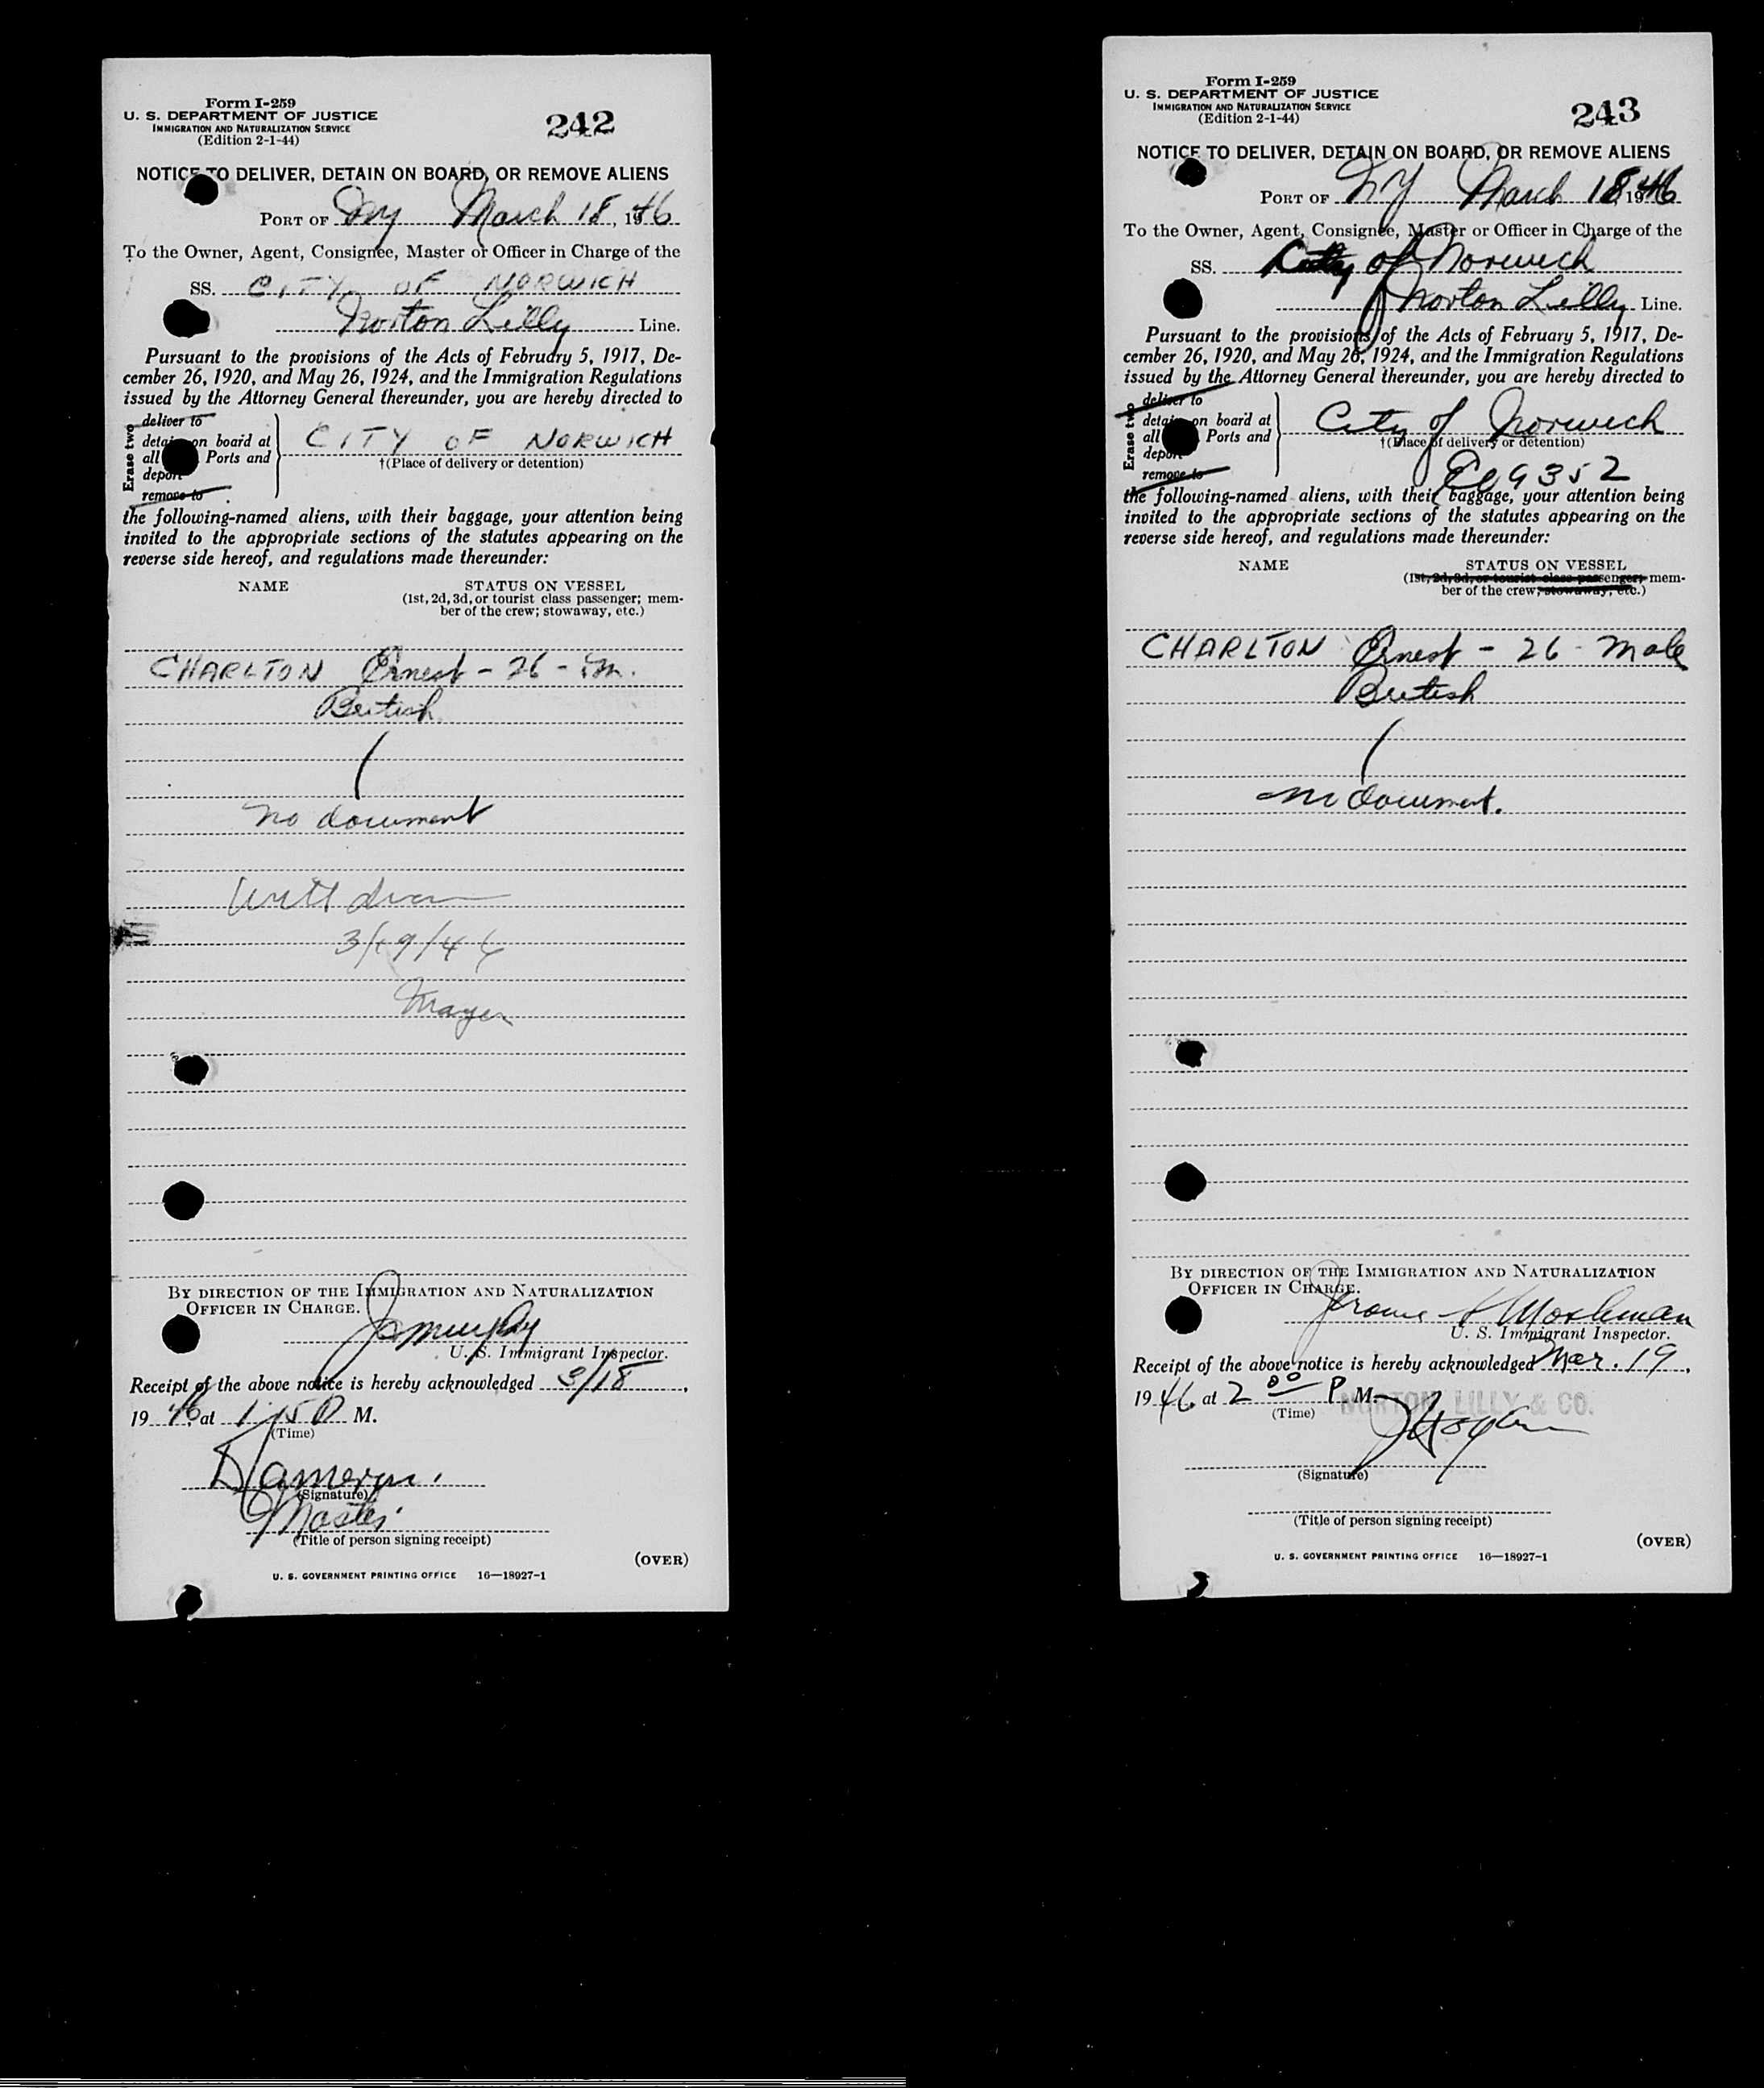 Form I-259
U. S. DEPARTMENT OF JUSTICE
IMMIGRATION AND NATURALIZATION SERVICE
(Edition 2-1-44)
242
NOTICE TO DELIVER, DETAIN ON BOARD, OR REMOVE ALIENS
PORT OF NY March 18, 1946
To the Owner, Agent, Consignee, Master or Officer in Charge of the
SS. CITY OF NORWICH
Norton Lilly Line.
Pursuant to the provisions of the Acts of February 5, 1917, De-
cember 26, 1920, and May 26, 1924, and the Immigration Regulations
issued by the Attorney General thereunder, you are hereby directed to
Erase two
deliver to
detain on board at
all Ports and
deport
remove to
CITY OF NORWICH
†(Place of delivery or detention)
the following-named aliens, with their baggage, your attention being
invited to the appropriate sections of the statutes appearing on the
reverse side hereof, and regulations made thereunder:
NAME STATUS ON VESSEL
(1st, 2d, 3d, or tourist class passenger; mem-
ber of the crew; stowaway, etc.)
CHARLTON Ernest - 26 - M.
British
No document
3/19/46
Mayer
BY DIRECTION OF THE IMMIGRATION AND NATURALIZATION
OFFICER IN CHARGE.
J Murphy
U. S. Immigrant Inspector.
Receipt of the above notice is hereby acknowledged 3/18,
1946 at 1:15 P M.
(Time)
(Signature)
Master
(Title of person signing receipt)
(OVER)
U. S. GOVERNMENT PRINTING OFFICE 16—18927-1
Form I-259
U. S. DEPARTMENT OF JUSTICE
IMMIGRATION AND NATURALIZATION SERVICE
(Edition 2-1-44)
243
NOTICE TO DELIVER, DETAIN ON BOARD, OR REMOVE ALIENS
PORT OF NY March 18 1946
To the Owner, Agent, Consignee, Master or Officer in Charge of the
SS. City of Norwich
Norton Lilly Line.
Pursuant to the provisions of the Acts of February 5, 1917, De-
cember 26, 1920, and May 26, 1924, and the Immigration Regulations
issued by the Attorney General thereunder, you are hereby directed to
Erase two
deliver to
detain on board at
all Ports and
deport
remove to
City of Norwich
†(Place of delivery or detention)
9352
the following-named aliens, with their baggage, your attention being
invited to the appropriate sections of the statutes appearing on the
reverse side hereof, and regulations made thereunder:
NAME STATUS ON VESSEL
(1st, 2d, 3d, or tourist class passenger; mem-
ber of the crew; stowaway, etc.)
CHARLTON Ernest - 26 - Male
British
no document.
BY DIRECTION OF THE IMMIGRATION AND NATURALIZATION
OFFICER IN CHARGE.
Jerome
U. S. Immigrant Inspector.
Receipt of the above notice is hereby acknowledged Mar. 19,
1946 at 2 00 P. M.
(Time)
NORTON, LILLY & CO.
(Signature)
(Title of person signing receipt)
(OVER)
U. S. GOVERNMENT PRINTING OFFICE 16—18927-1